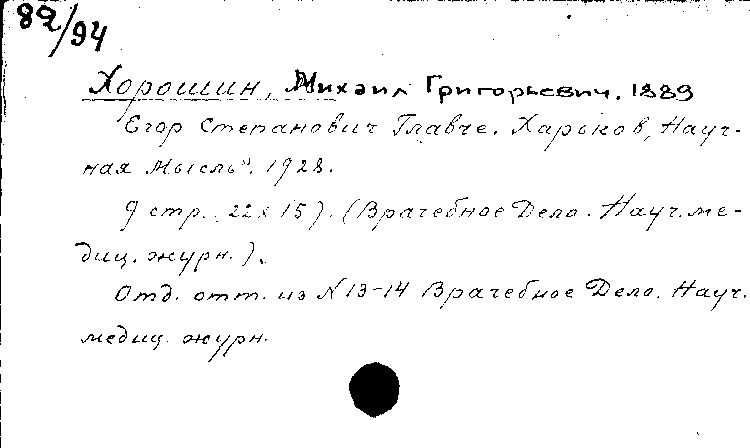 82/94
Хорошин, Михаил Григорьевич. 1889
Егор Степанович Главче. Харьков, Науч-
ная Мысль". 1928.
9 стр. 22х15). (Врачебное Дело. Науч. ме-
диц. журн.).
Отд. отт. из N 13-14 Врачебное Дело. Науч.
медиц. журн.